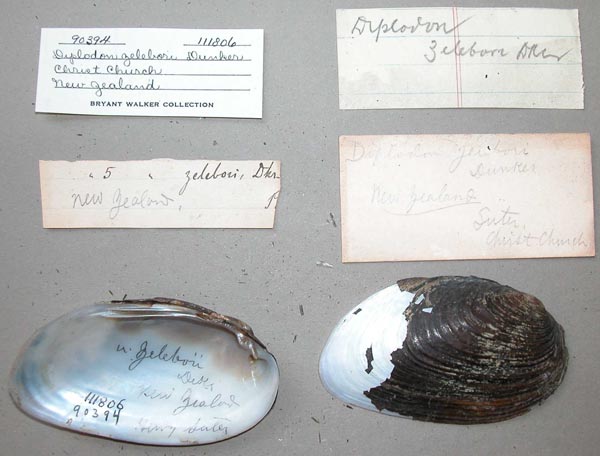 90394 111806
Diplodon zelebori Dunker
Christ Church
New Zealand
BRYANT WALKER COLLECTION
Diplodon
Zelebori Dkr
" 5 " zelebori, Dkr
New Zealand,
Diplodon zelebori
Dunker
New Zealand
Suter
Christ Church
u. Zelebori
Dkr.
New Zealand
Henry Suter
111806
90394